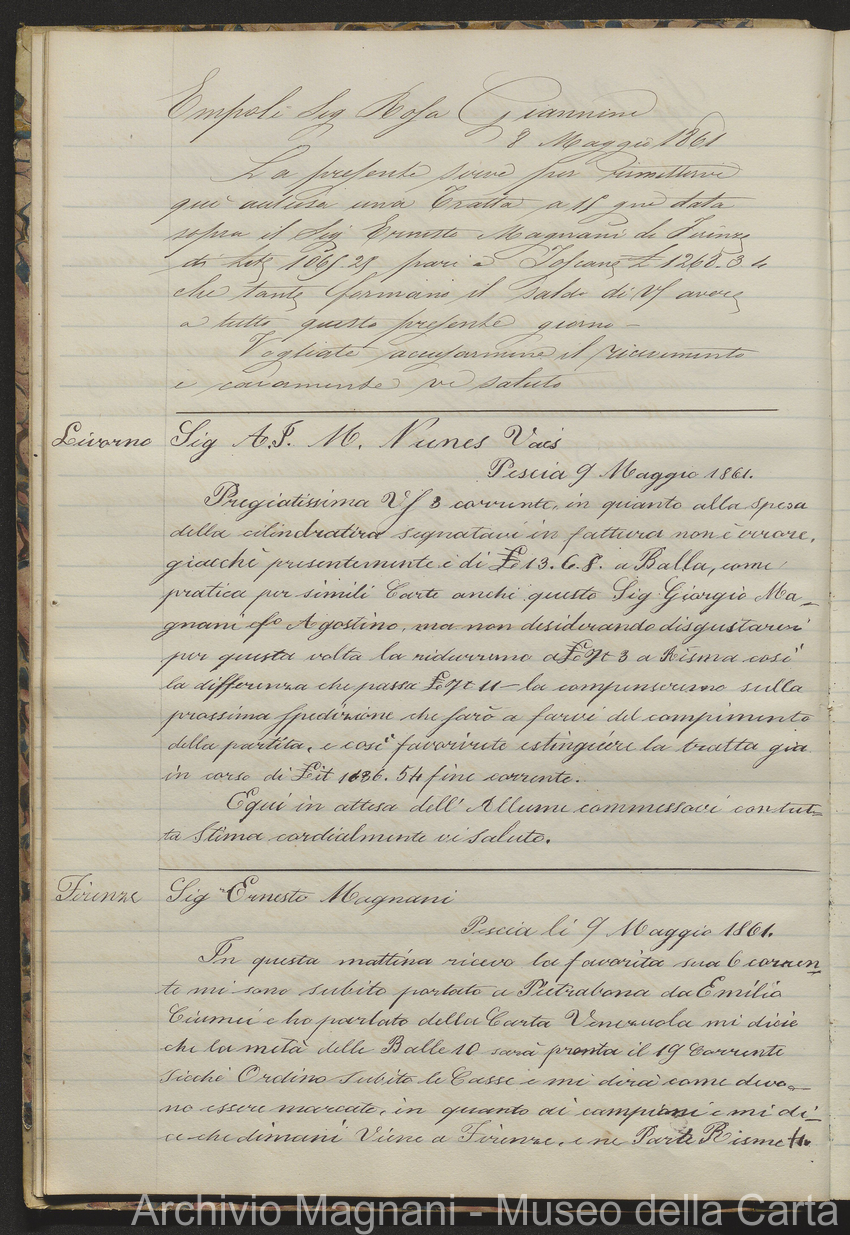 Empoli Sig Rosa Giannini
8 Maggio 1861
La presente serve per rimettervi
qui acclusa una Tratta a 15 gni data
sopra il Sig Ernesto Magnani di Firenze
di Lit 1065.25 pari a Toscane £ 1268.3.4
che tante formano il saldo di Vs avere
a tutto questo presente giorno —
Vogliate accusarmene il ricevimento
e caramente vi saluto
Livorno Sig A. J. M. Nunes Vais
Pescia 9 Maggio 1861.
Pregiatissima Vs 3 corrente, in quanto alla spesa
della cilindratira segnatavi in fattura non è errore,
giacchè presentemente è di £ 13.6.8. a Balla, come
pratica per simili Carte anche questo Sig Giorgio Ma-
gnani fo Agostino, ma non desiderando disgustarvi
per questa volta la ridurremo a 3 a Risma così
la differenza che passa 11 — la compenseremo sulla
prossima spedizione che farò a farvi del compimento
della partita, e così favorirete estinguere la tratta già
in corso di Lit 1636.54 fine corrente.
Equi in attesa dell' Allume commessovi con tut=
ta Stima cordialmente vi saluto.
Firenze Sig Ernesto Magnani
Pescia li 9 Maggio 1861.
In questa mattina ricevo la favorita sua 6 corren=
te mi sono subito portato a Pietrabona da Emilio
Ciumei e ho parlato della Carta Venezuola mi dicie
che la metà delle Balle 10 sarà pronta il 19 Corrente
sichè Ordino subito le Casse e mi dirà come devo-
no essere marcate, in quanto ai campioni e mi di-
ce che dimani Viene a Firenze, e ne Parte Risme
Archivio Magnani - Museo della Carta